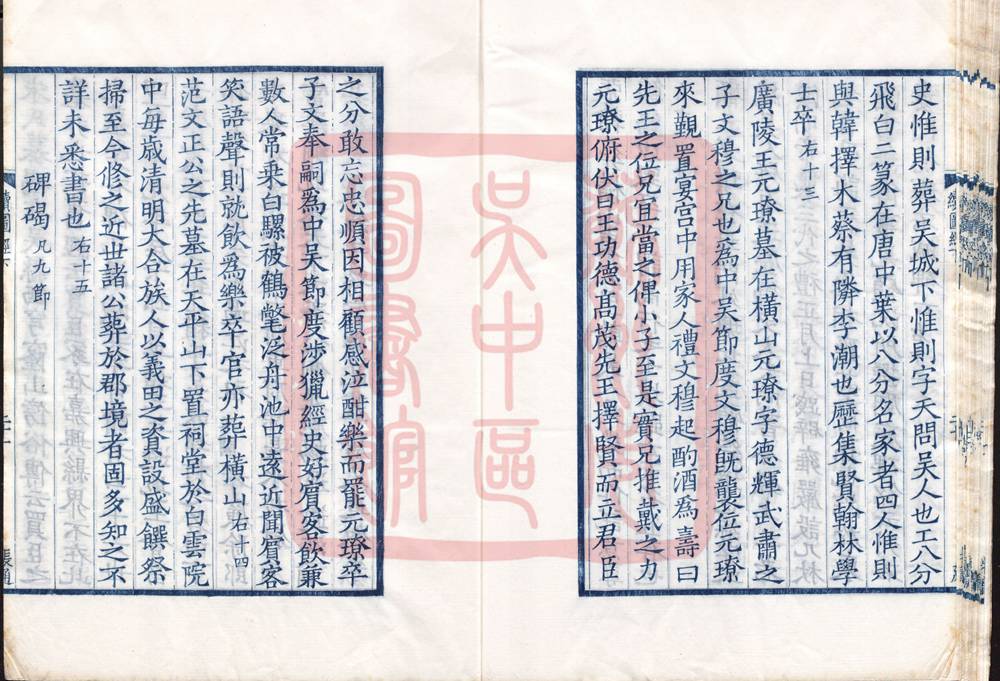 史惟則葬吳城下惟則字天問吳人也工八分
飛白二篆在唐中葉以八分名家者四人惟則
與韓擇木蔡有隣李潮也歷集賢翰林學
士卒右十三
廣陵王元璙墓在橫山元璙字德輝武肅之
子文穆之兄也爲中吳節度文穆旣襲位元璙
來覲置宴宮中用家人禮文穆起酌酒爲壽曰
先王之位兄宜當之俾小子至是實兄推戴之力
元璙俯伏曰王功德髙茂先王擇賢而立君臣
之分敢忘忠順因相顧感泣酣樂而罷元璙卒
子文奉嗣爲中吳節度涉獵經史好賔客飲兼
數人常乗白騾被鶴氅泛舟池中遠近聞賔客
笑語聲則就飲爲樂卒官亦葬橫山右十四
范文正公之先墓在天平山下置祠堂於白雲院
中每歲清明大合族人以義田之資設盛饌祭
掃至今修之近世諸公葬於郡境者固多知之不
詳未悉書也右十五
碑碣凡九節
續圖經下
吳中區
圖書館